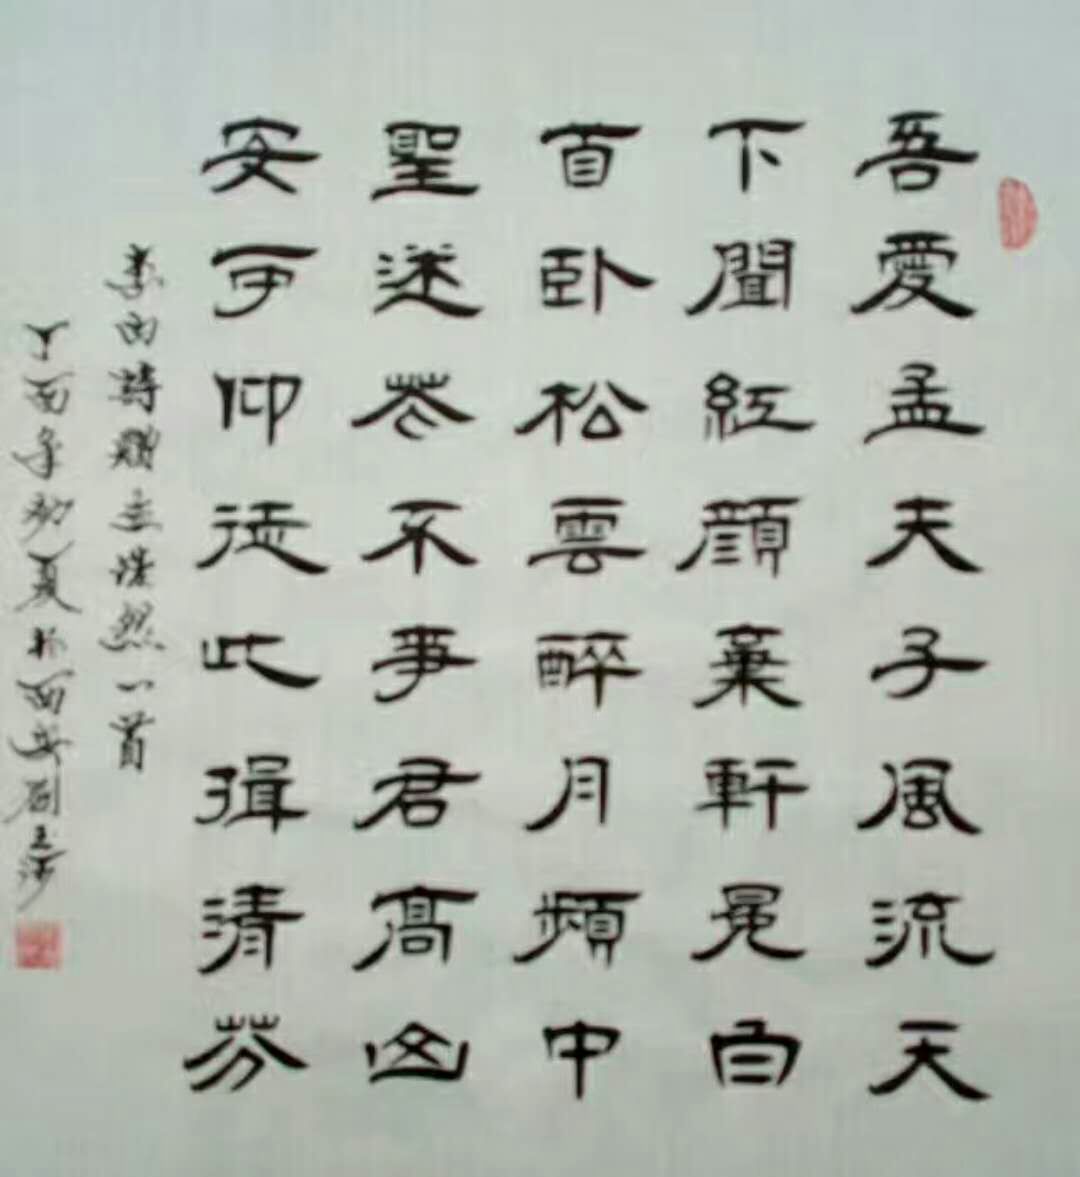 吾愛孟夫子風流天
下聞紅顔棄軒冕白
首卧松雲醉月頻中
聖迷花不事君高山
安可仰徒此揖清芬
李白詩贈孟浩然一首
丁酉年初夏於西安劉玉